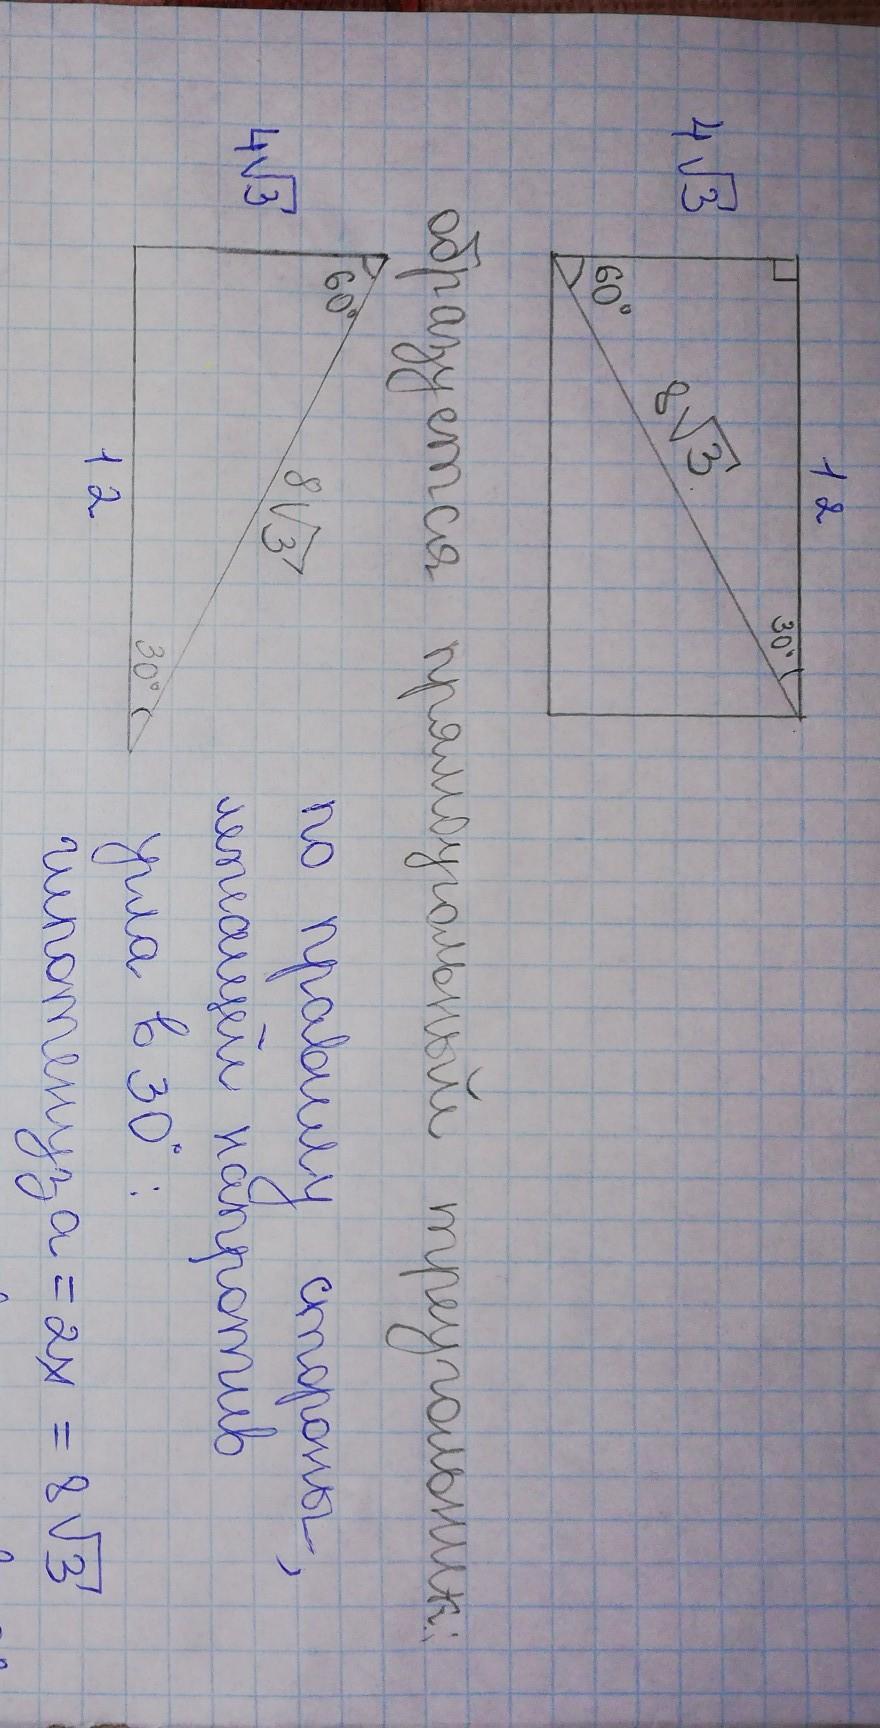 12
30°
4√3
8√3
60°
образуется прямоугольный треугольник:
60°
4√3
8√3
30°
12
по правилу стороны,
лежащей напротив
угла в 30°:
гипотенуза = 2x = 8√3